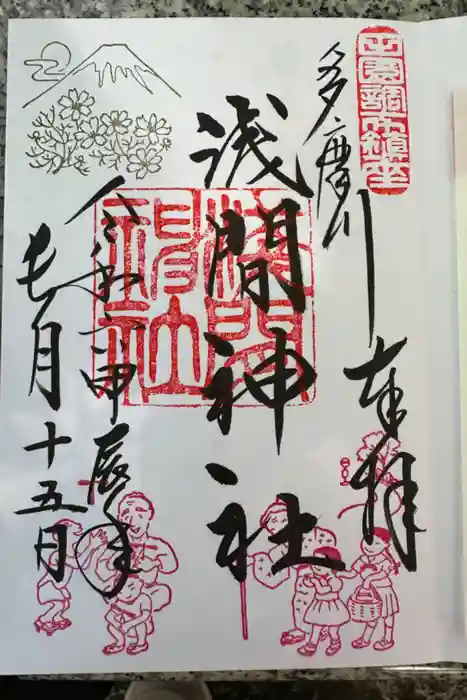 田園調布鎮座
奉拝
多摩川
浅間神社
淺間
神社
令和六甲辰年
長月十五日